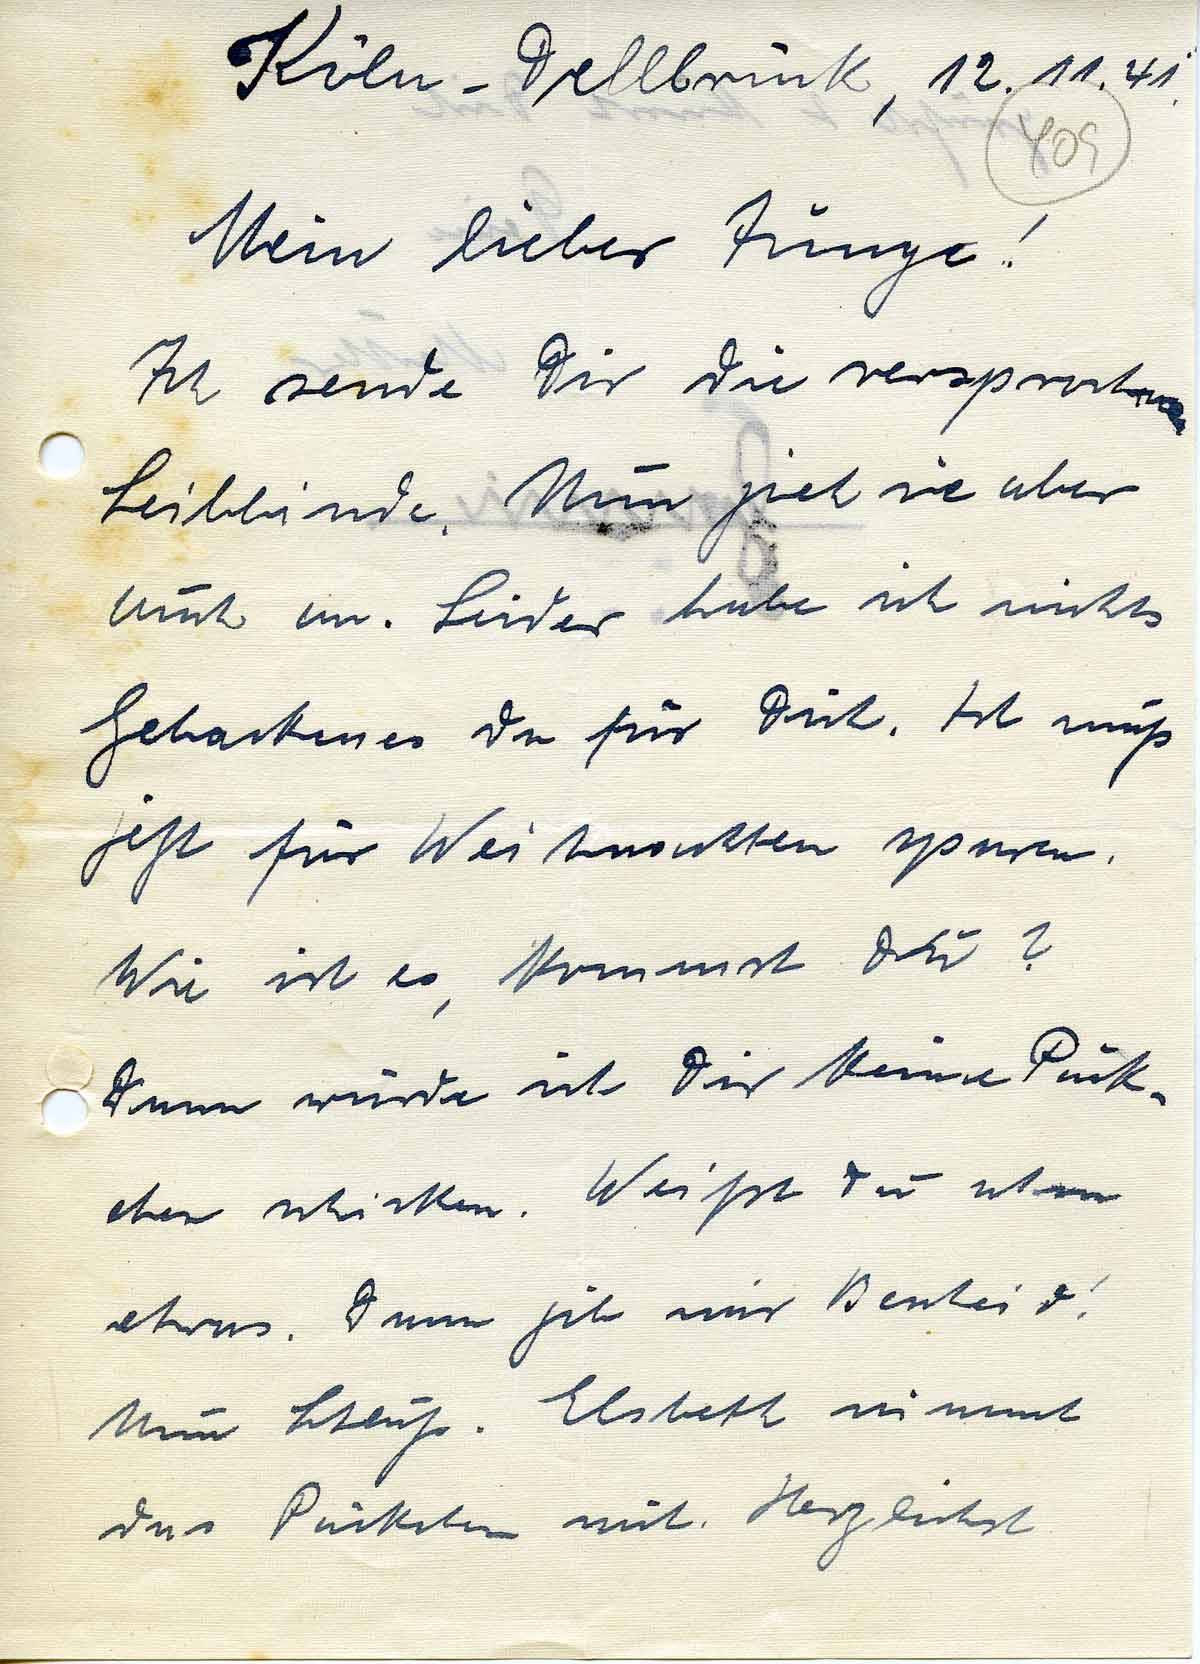 Köln-Dellbrück, 12.11.41.
409
Mein lieber Junge!
Ich sende Dir die versprochene
Leibbinde. Nun zieh sie aber
auch an. Leider habe ich nichts
Gebackenes da für Dich. Ich muß
jetzt für Weihnachten sparen.
Wie ist es, kommst Du?
Dann würde ich Dir keine Päck-
chen schicken. Weißt Du schon
etwas. Dann gib mir Bescheid!
Nun Schluß. Elsbeth nimmt
das Päckchen mit. Herzlichst